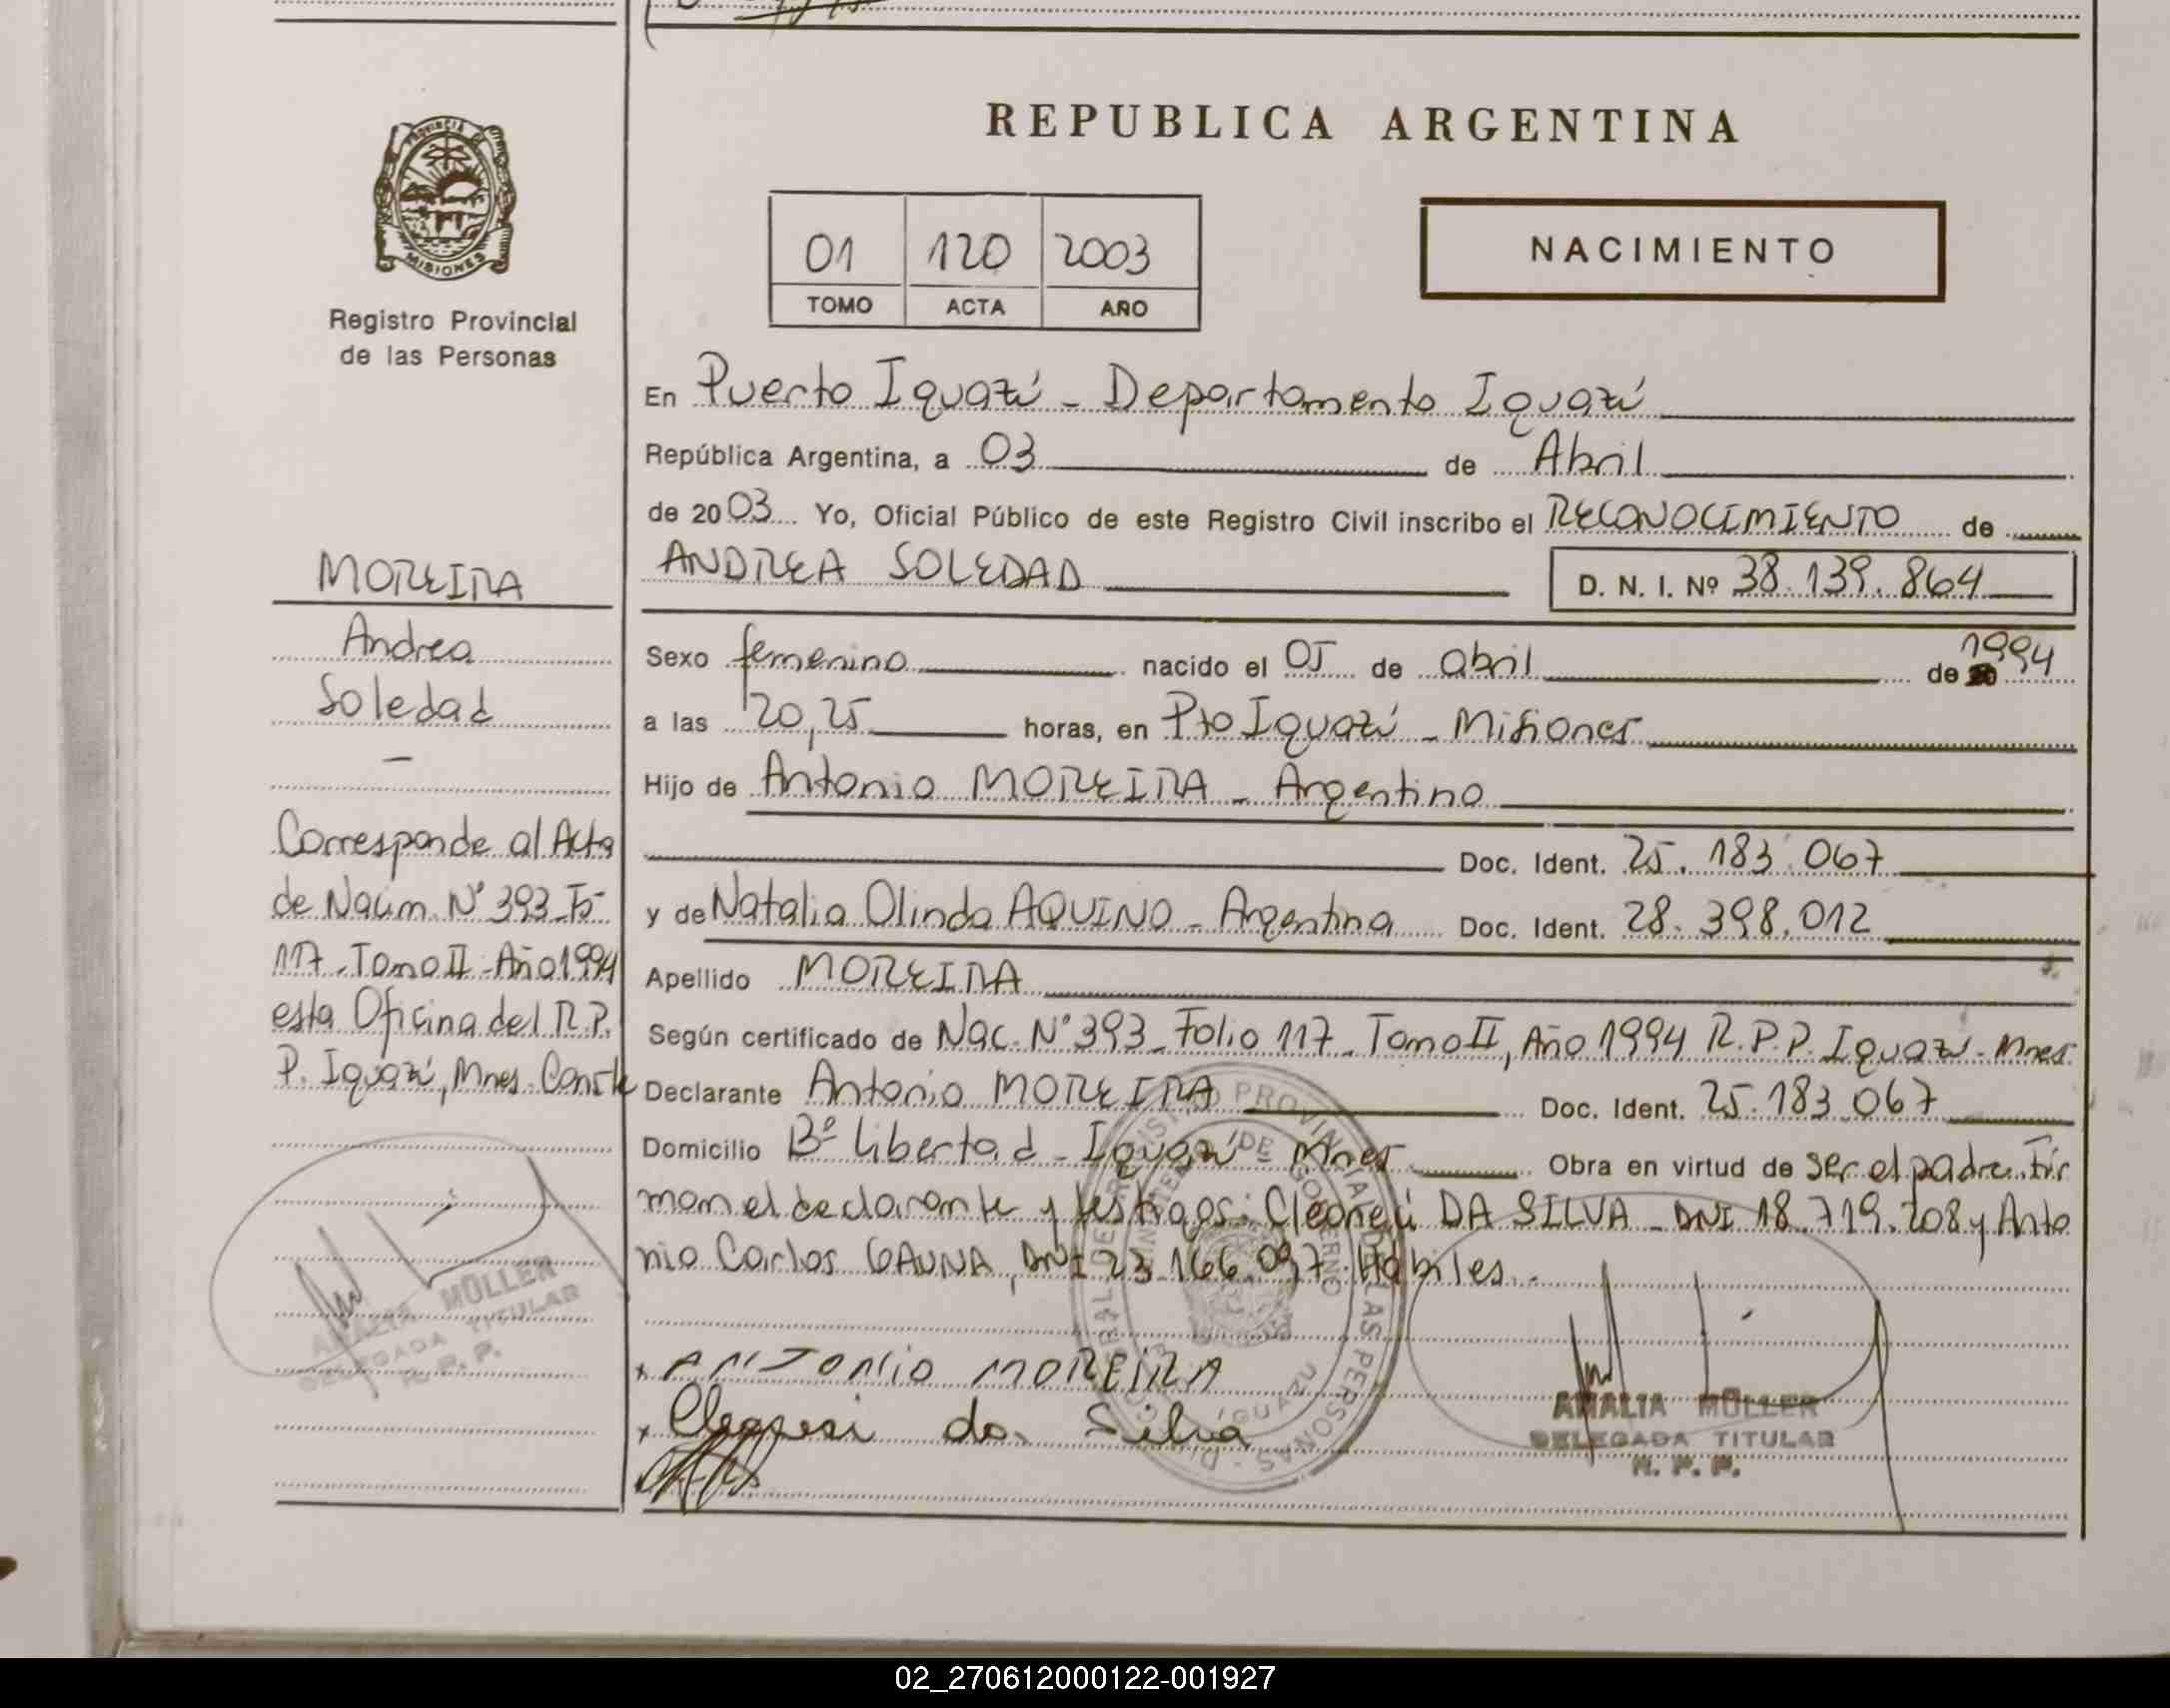 REPUBLICA ARGENTINA
PROVINCIA DE
MISIONES
Registro Provincial
de las Personas
01 120 2003
TOMO ACTA AÑO
NACIMIENTO
En Puerto Iguazú - Departamento Iguazú
República Argentina, a 03 de Abril
de 2003 Yo, Oficial Público de este Registro Civil inscribo el RECONOCIMIENTO de
ANDREA SOLEDAD D. N. I. Nº 38.139.864
Sexo femenino nacido el 05 de abril de 1994
a las 20,25 horas, en Pto Iguazú - Misiones
Hijo de Antonio MOREIRA - Argentino
Doc. Ident. 25.183.067
y de Natalia Olinda AQUINO - Argentina Doc. Ident. 28.398.012
Apellido MOREIRA
Según certificado de Nac. Nº 393 - Folio 117 - Tomo II, Año 1994 R.P.P. Iguazú - Mnes.
Declarante Antonio MOREIRA Doc. Ident. 25.183.067
Domicilio Bº Libertad - Iguazú - Mnes Obra en virtud de ser el padre. Fir
man el declarante y testigos: DA SILVA - DNI 18.719.208 y Anto
nio Carlos GAUNA, DNI 23.166.097. Hábiles.
x ANTONIO MOREIRA
x da Silva
AMALIA MÜLLER
DELEGADA TITULAR
R. P. P.
MOREIRA
Andrea
Soledad
-
Corresponde al Acta
de Nacim. Nº 393 - Fº
117 - Tomo II - Año 1994
esta Oficina del R.P.
P. Iguazú, Mnes. Conste
AMALIA MÜLLER
DELEGADA TITULAR
R. P. P.
REGISTRO PROVINCIAL DE LAS PERSONAS
MINISTERIO DE GOBIERNO
IGUAZU
02_270612000122-001927